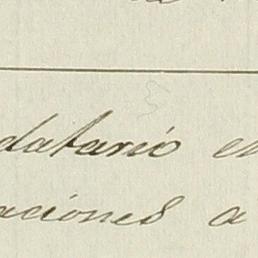 datario en
aciones a